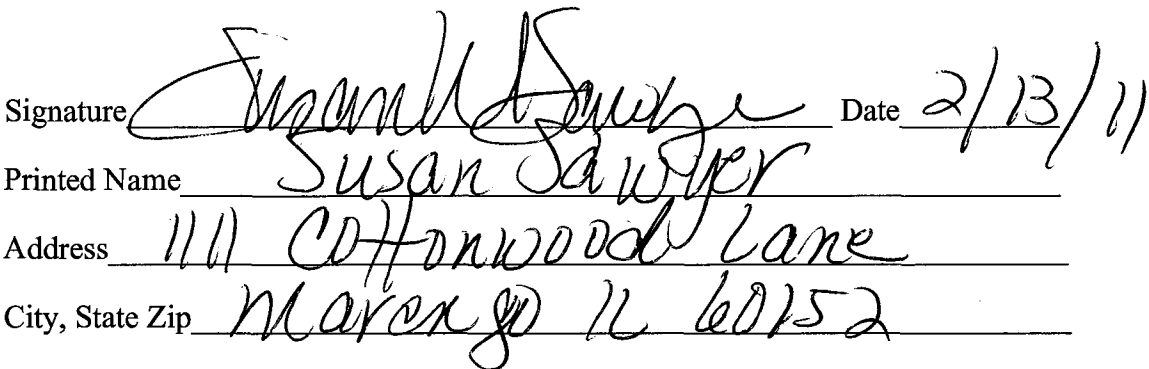 Signature Susan Sawyer Date 2/13/11
Printed Name Susan Sawyer
Address 1111 Cottonwood Lane
City, State Zip Marengo IL 60152